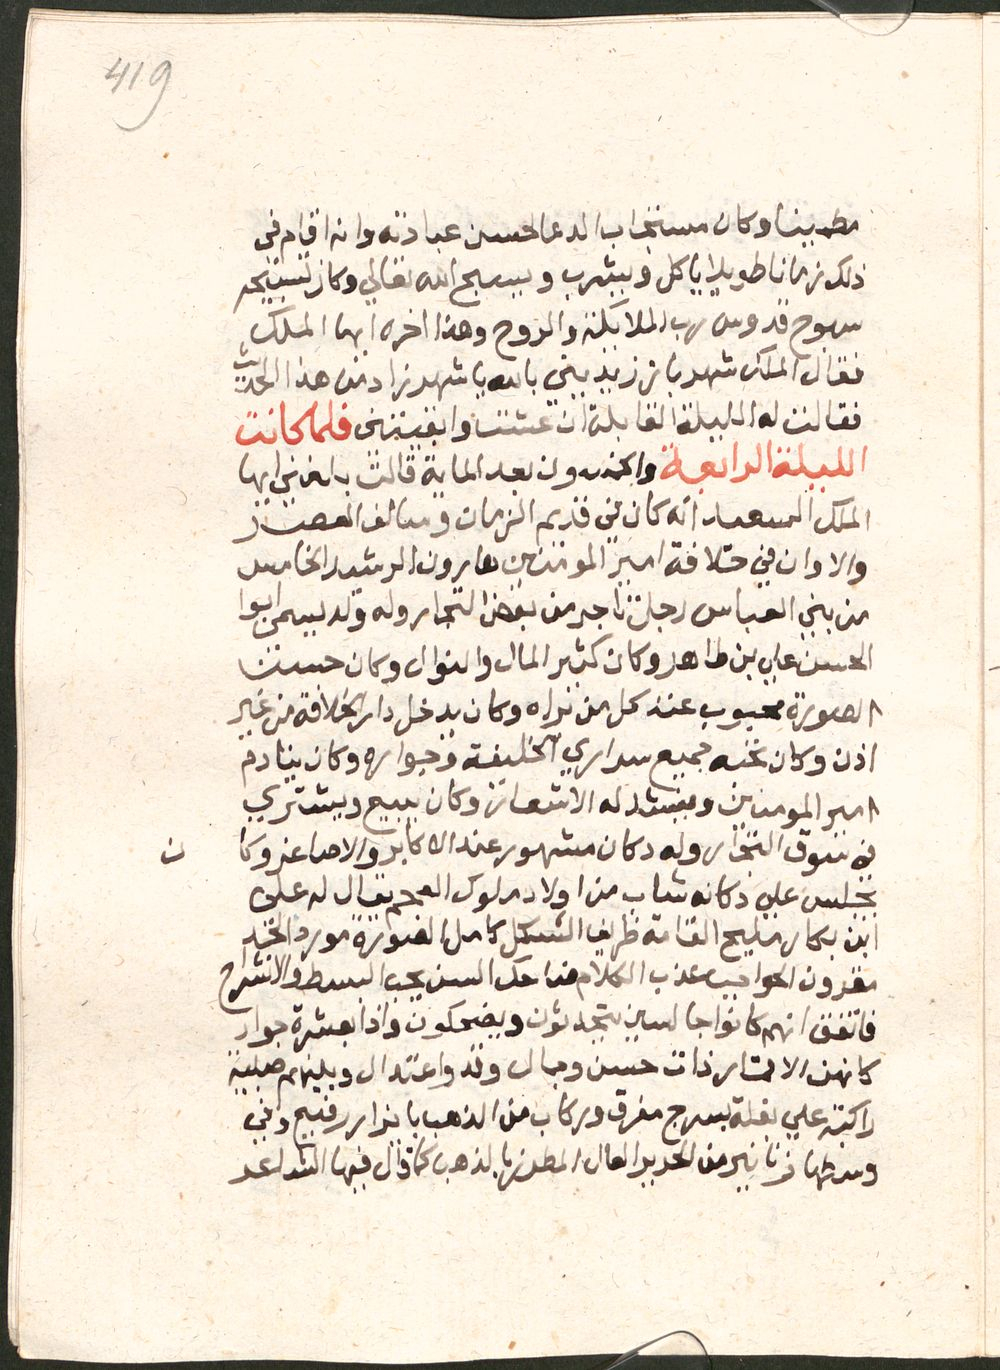 419
مطمينا وكان مستجاب الدعا لحسن عبادته وانه اقام في
ذلك زمانا طويلا ياكل ويشرب ويسبح الله تعالي وكان تسبيحه
سبوح قدوس رب الملايكة والروح وهذا اخره ايها الملك
فقال الملك شهرباز زيديني بالله يا شهرزاد من هذا الحديث
فقالت له الليلة القابلة ان عشت وابقيتني فلما كانت
الليلة الرابعة والخمسون بعد الماية قالت بلغني ايها
الملك السعيد انه كان في قديم الزمان وسالف العصر
والاوان في خلافة امير المومنين هارون الرشيد الخامس
من بني العباس رجل تاجر من بعض التجار وله ولد يسمي ابوا
الحسن علي بن طاهر وكان كثير المال والنوال وكان حسن
الصورة محبوب عند كل من يراه وكان يدخل دار الخلافة من غير
اذن وكان تحبه جميع سراري الخليفة وجواره وكان ينادم
امير المومنين وينشد له الاشعار وكان يبيع ويشتري
في سوق التجار وله دكان مشهور عند الاكابر والاصاغر وكا ن
يجلس علي دكانه شاب من اولاد ملوك العجم يقال له علي
ابن بكار مليح القامة ظريف الشكل كامل الصورة مورد الخد
مقرون الحواجب عذب الكلام ضاحك السن يحب البسط والانشراح
فاتفق انهم كانوا جالسين يتحدثون ويضحكون واذا بعشرة جوار
كانهن الاقمار ذات حسن وجمال وقد واعتدال وبينهم صبية
راكبة علي بغلة بسرج مغرق وركاب من الذهب بازار رفيع وفي
وسطها زنانير من الحرير العال المطرز بالذهب كما قال فيها الشاعر